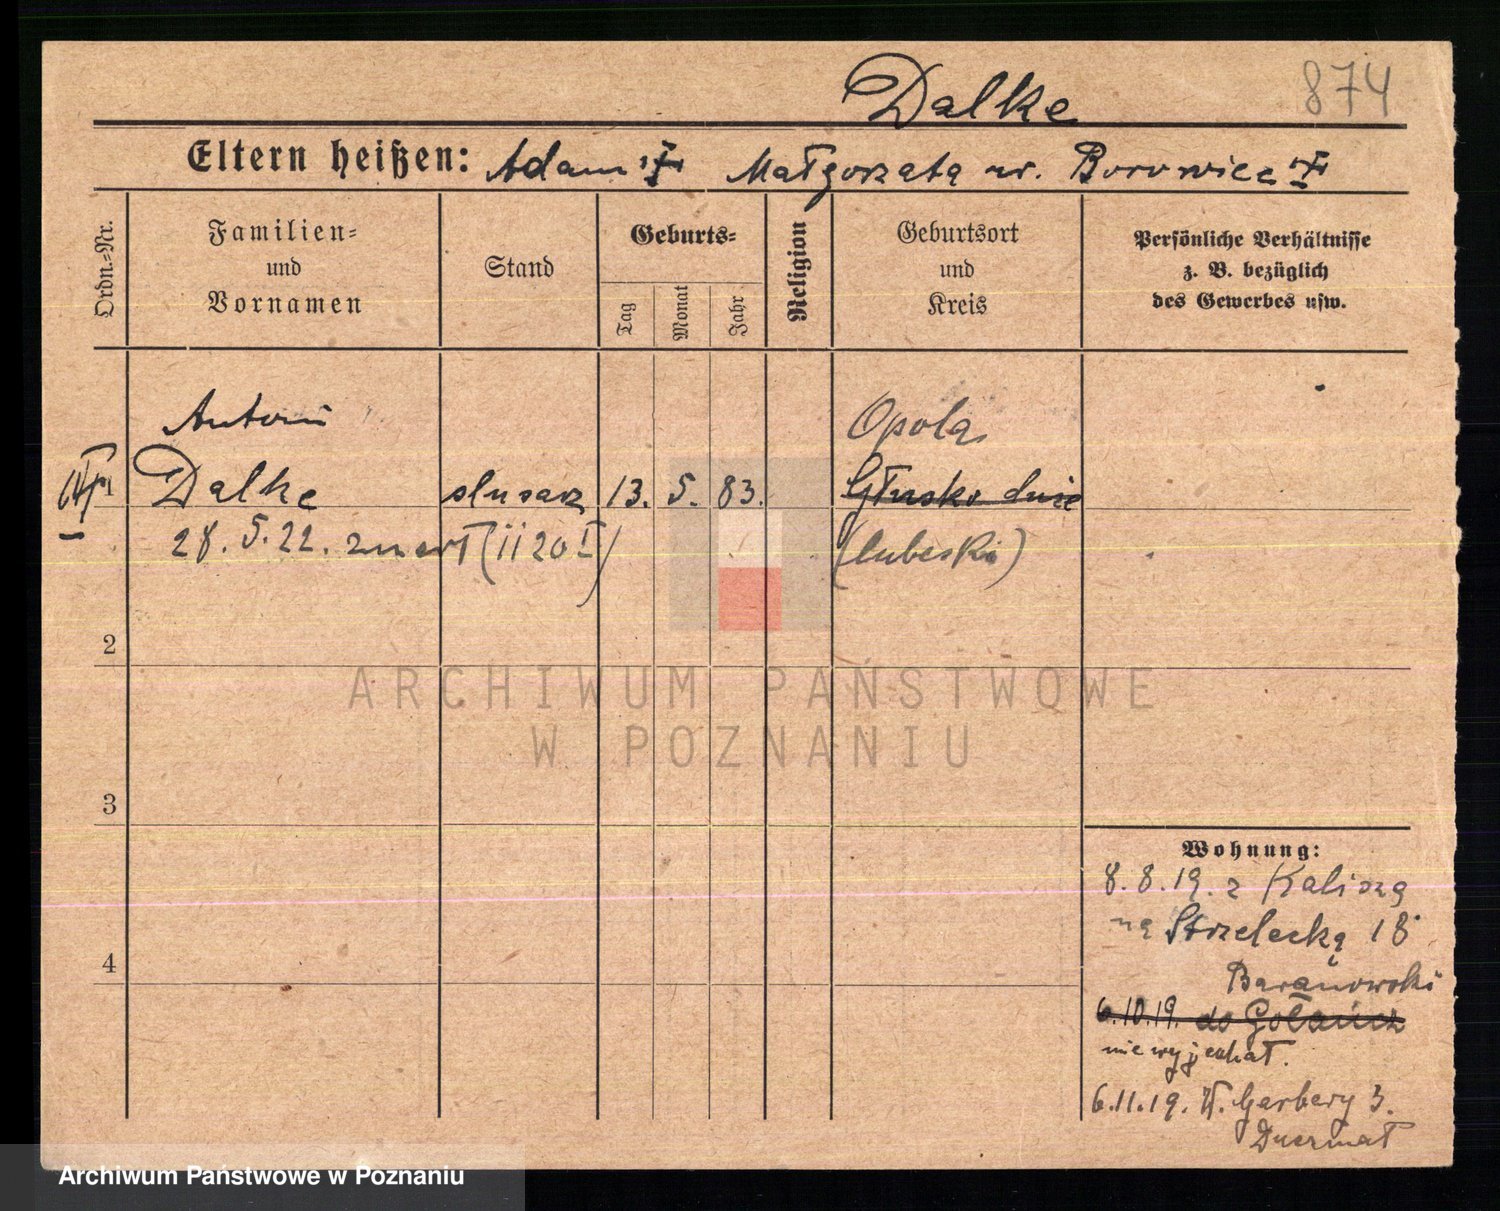 874
Dalke
Eltern heißen: Adam Małgorzata ur. Borowicz
Ordn.-Nr.
Familien-
und
Vornamen
Stand
Geburts-
Tag
Monat
Jahr
Religion
Geburtsort
und
Kreis
Persönliche Verhältnisse
z. B. bezüglich
des Gewerbes usw.
Antoni
Opola
1 Dalke slusarz 13. 5. 83. Głusko duże
28. 5. 22. zmarł (ii 20 I) (lubeski)
2
ARCHIWUM PAŃSTWOWE
W POZNANIU
3
Wohnung:
8. 8. 19. z Kalisza
na Strzelecką 18
Baranowski
4
6.10.19. do Gołańcz
nie wyjechał.
6.11.19. W. Garbary 3.
Archiwum Państwowe w Poznaniu